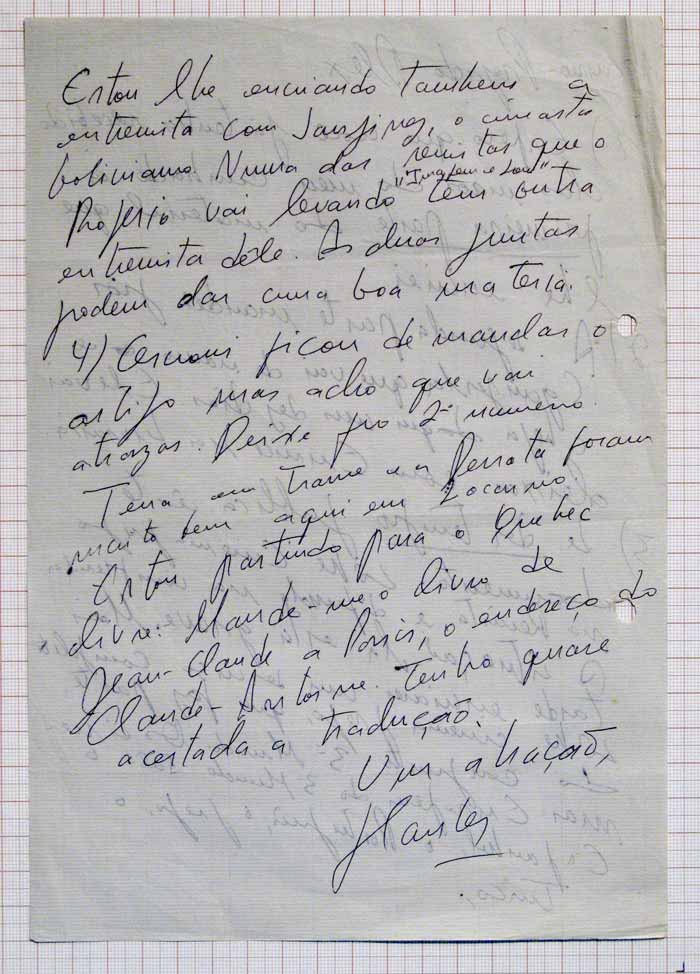 Estou lhe enviando tambem a
entrevista com Sanjinez, o cineasta
boliviano. Numa das revistas que o
"Imagem e Som"
Rogério vai levando tem outra
entrevista dele. As duas juntas
podem dar uma boa materia.
4) ficou de mandar o
artigo mas acho que vai
atrazar. Deixe pro 2º numero.
Terra em Transe e a foram
muito bem aqui em Locarno
Estou partindo para o Quebec
livre: Mande-me o livro de
Jean-Claude a Paris, o endereço do
Claude-Antoine. Tenho quase
acertada a tradução.
Um abração,